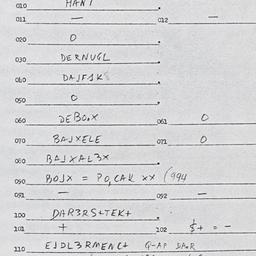 010 HANT
011 — 012 —
020 O
030 DERNUGL
040 DAJFJK8
050 O
060 DEBO.X 061 O
070 BAJXELE 071 O
080 BAJXAL3X
090 BOJX = PO,CAK xx (994
091 — 092 —
100 DAR3RS+TEK+
101 + 102 $+ = -
110 EJDL3RMENC+ G-AP DA.R